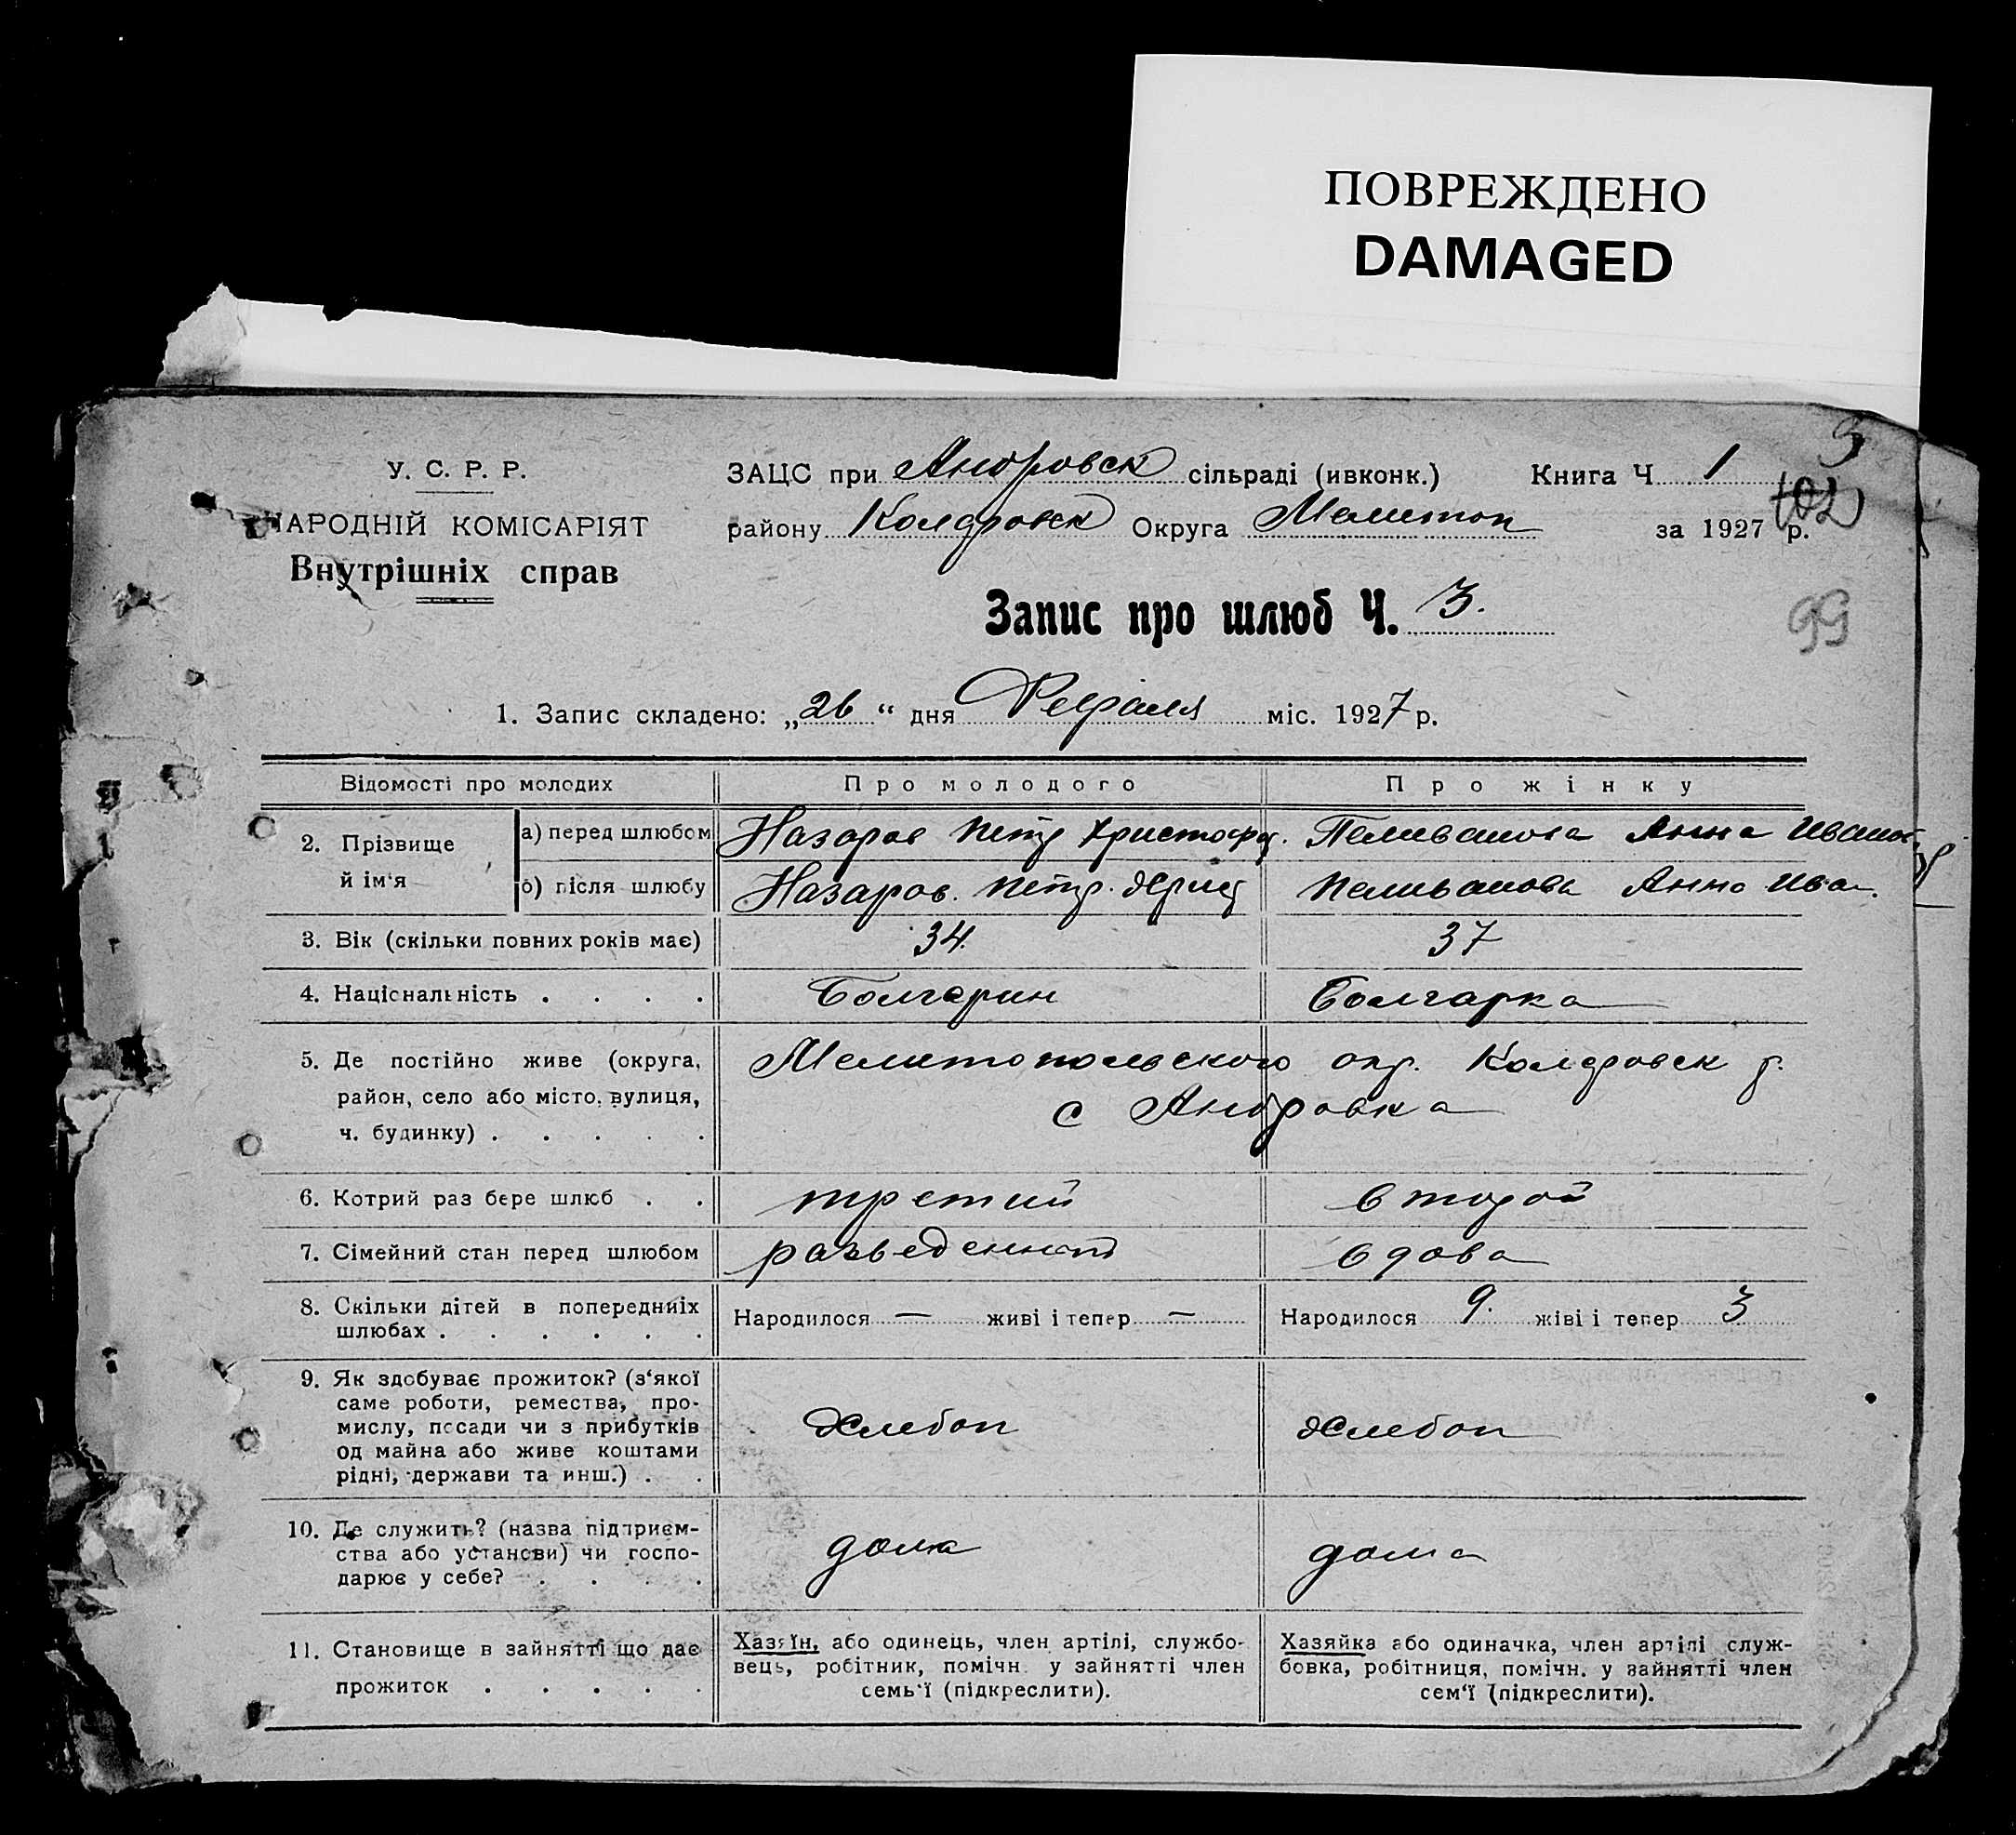 ПОВРЕЖДЕНО
DAMAGED
3
У. С. Р. Р.
НАРОДНІЙ КОМІСАРІЯТ
Внутрішніх справ
ЗАЦС при Андровск сільраді (ивконк.) Книга Ч 1
102
району Коларовск Округа Мелитоп за 1927 р.
Запис про шлюб Ч. 3.
99
1. Запис складено: „26“ дня Февраля міс. 1927 р.
Відомості про молодих Про молодого Про жінку
2. Прізвище й ім‘я
а) перед шлюбом Назаров Петр Христофор. Пеливанова Анна Иванов.
б) після шлюбу Назаров. Петр. Хрис Пеливанова Анна Ива.
3. Вік (скільки повних років має) 34. 37
4. Національність . . . . Болгарин Болгарка
5. Де постійно живе (округа, Мелитопольского окр. Коларовск р.
район, село або місто, вулиця, с Андровка
ч. будинку) . . . . .
6. Котрий раз бере шлюб . . третий второй
7. Сімейний стан перед шлюбом разведенный вдова
8. Скільки дітей в попередніх Народилося — живі і тепер — Народилося 9. жіві і тепер 3
шлюбах . . . . . .
9. Як здобуває прожиток? (з‘якої
саме роботи, ремества, про-
мислу, посади чи з прибутків Хлебоп Хлебоп
од майна або живе коштами
рідні, держави та инш.) . .
10. Де служить? (назва підприєм-
ства або установи) чи госпо- дома дома
дарює у себе? . . . .
11. Становище в зайнятті що дає
прожиток . . . . .
Хазяїн, або одинець, член артілі, службо-
вець, робітник, помічн. у зайнятті член
семь‘ї (підкреслити).
Хазяйка або одиначка, член артілі служ-
бовка, робітниця, помічн. у зайнятті член
сем‘ї (підкреслити).